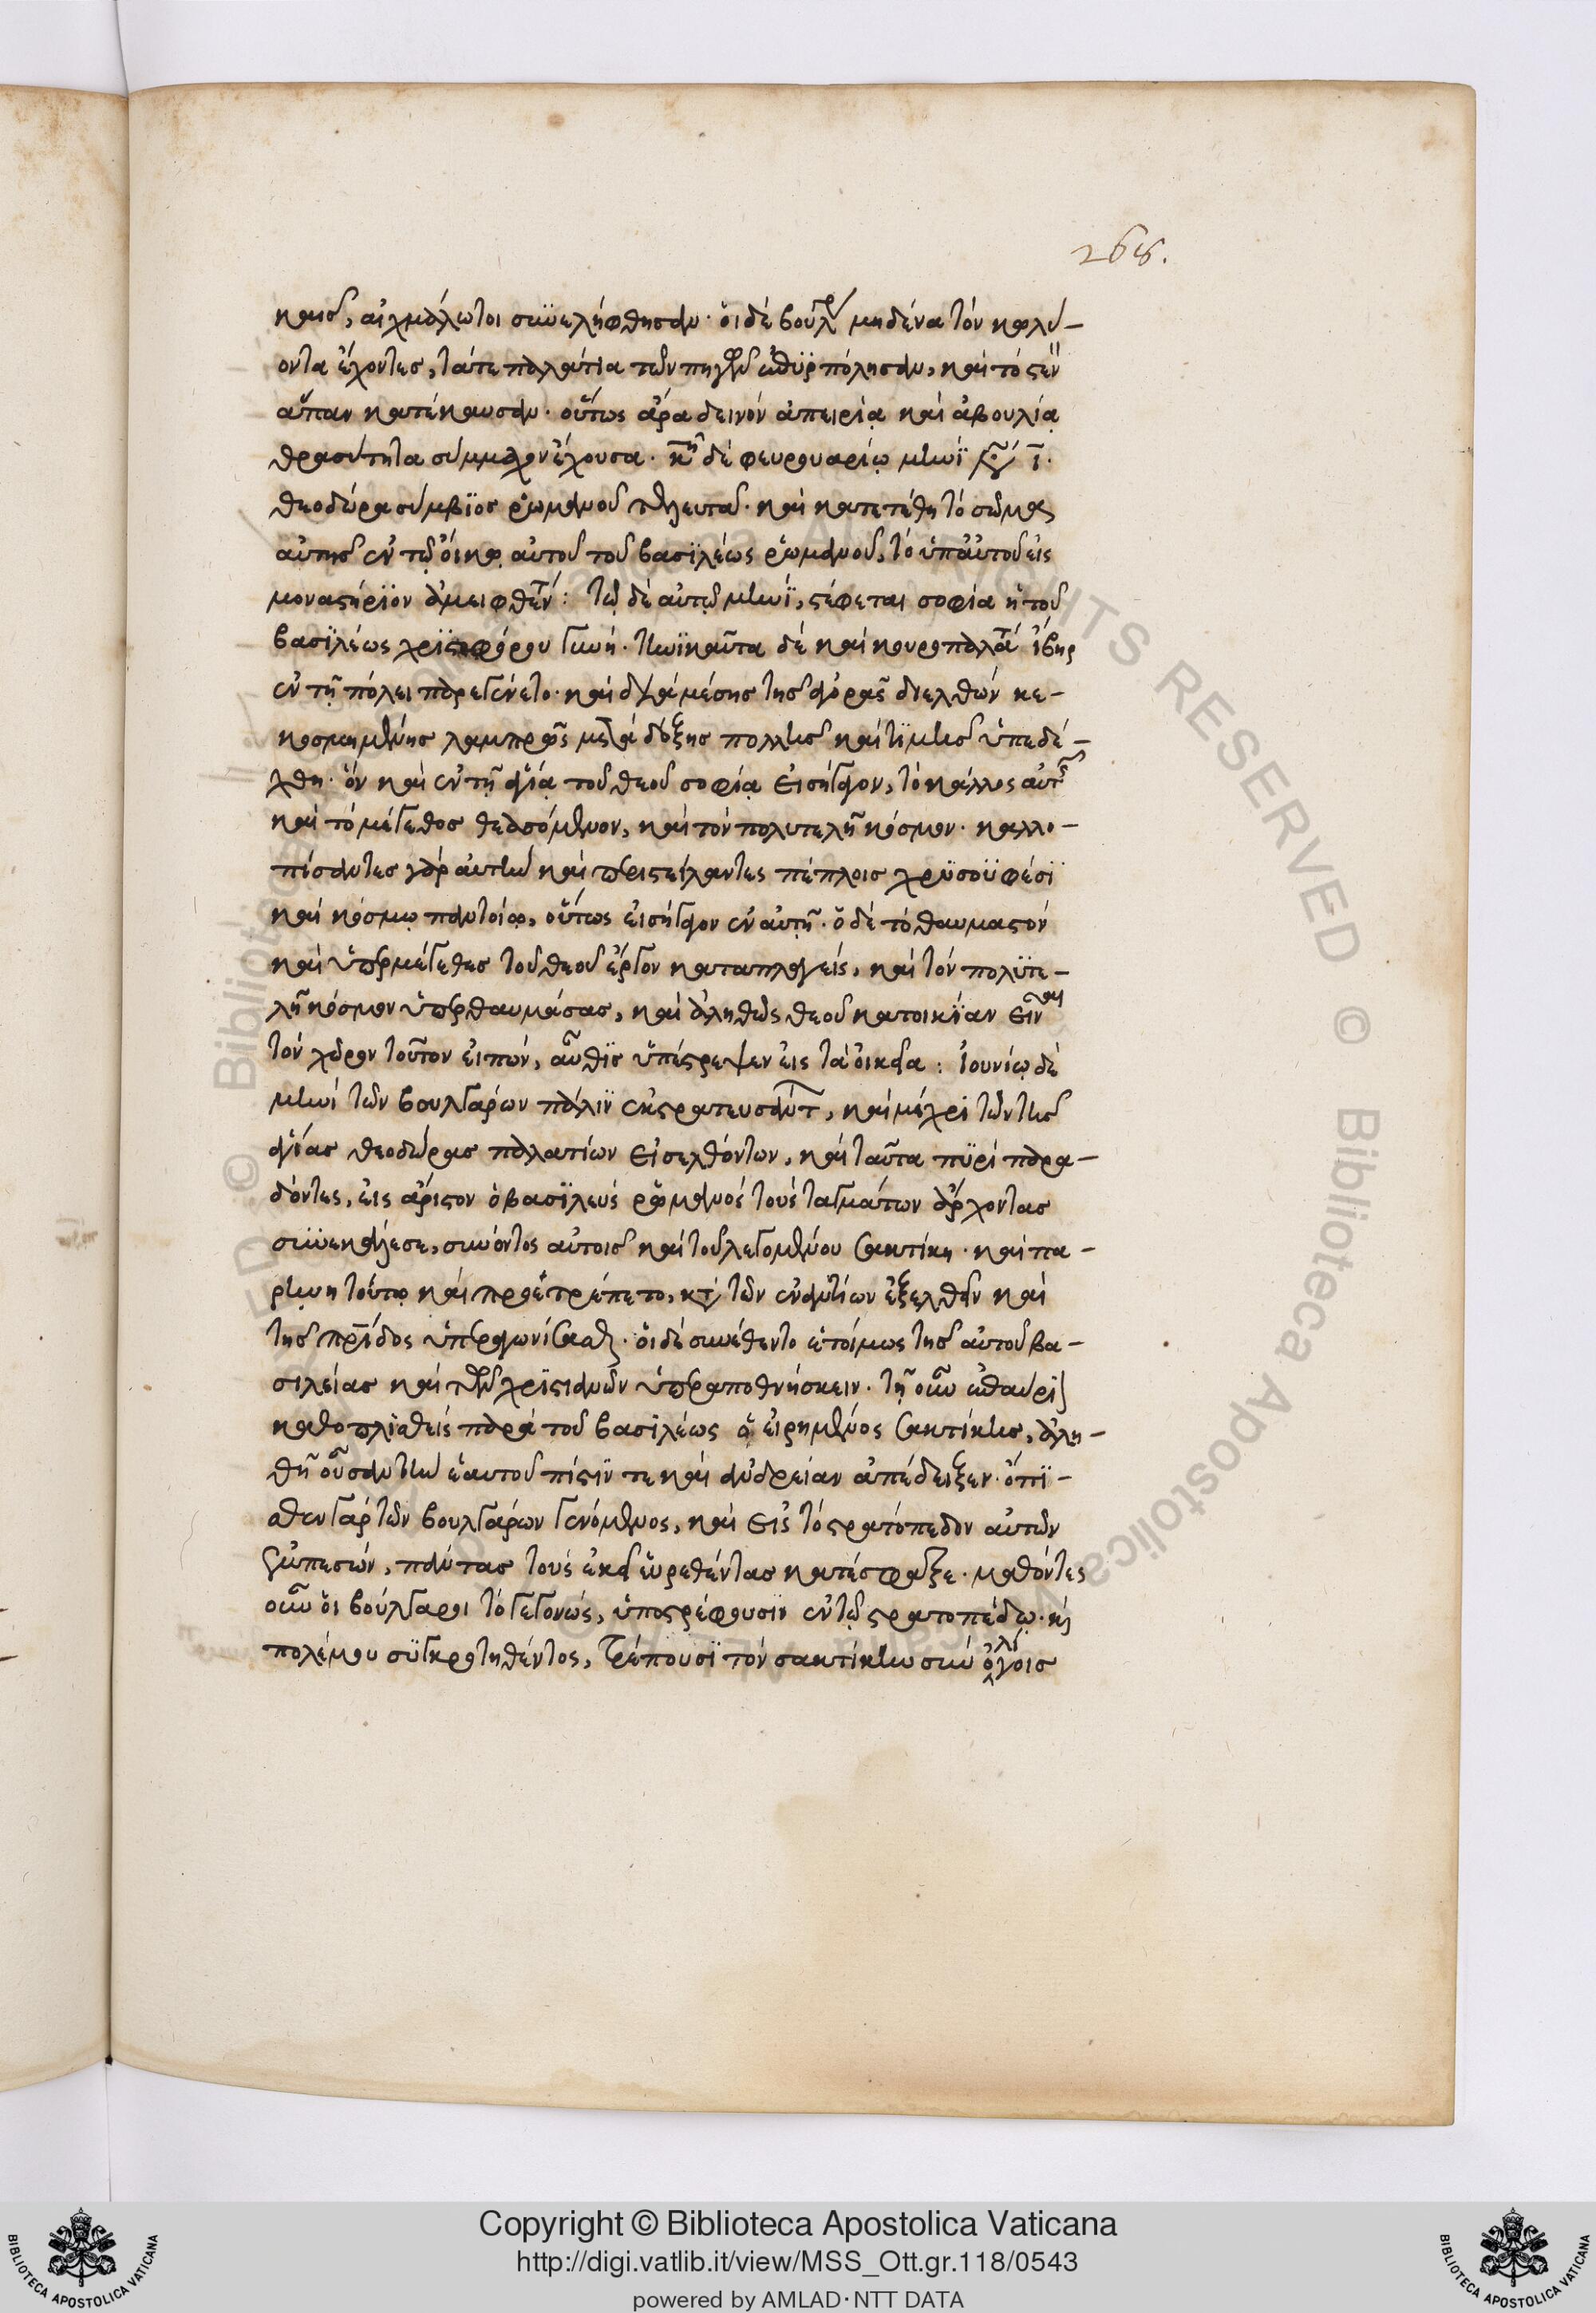 268.
καις, αἰχμάλωτοι συνελήφθησαν. ὁι δὲ βούλγ μηδένα τὸν κωλύ-
οντα ἔχοντες, τάτε παλάτια τῶν πηγῶν ἐπυρπόλησαν, καὶ τὸ στεν
ἅπαν κατέκαυσαν. οὕτως ἄρα δεινὸν ἀπειρία καὶ ἀβουλία
θρασύτητα σύμμαχον ἔχουσα. κη δὲ φευρουαρίω μηνὶ ι.
θεοδώρα σύμβιος ῥωμανοῦ τελευτᾶ. καὶ κατετέθη τὸ σῶμα
αὐτῆς ἐν τῷ ὀίκῳ αὐτοῦ τοῦ βασιλέως ῥωμανοῦ, τὸ ὑπ' αὐτοῦ εἰς
μοναστήριον ἀμειφθέν: τῷ δὲ αὐτῷ μηνὶ, στέφεται σοφία ἡ τοῦ
βασιλέως χριστοφόρου γυνή. τηνικαῦτα δὲ καὶ κουροπαλάτ ἴβηρ
ἐν τῇ πόλει παρεγένετο. καὶ διὰ μέσης τῆς ἀγορᾶς διελθὼν κε-
κοσμημένης λαμπρῶς μετὰ δόξης πολλῆς καὶ τιμῆς ὑπεδέ-
χθη. ὃν καὶ ἐν τῇ ἁγίᾳ τοῦ θεοῦ σοφίᾳ εἰσήγαγον, τὸ κάλλος αὐτῆς
καὶ τὸ μέγεθος θεασόμενον, καὶ τὸν πολυτελῆ κόσμον. καλλο-
πίσαντες γὰρ αὐτὴν καὶ περιστείλαντες πέπλοις χρυσουφέσι
καὶ κόσμῳ παντοίῳ, οὕτως εἰσήγαγον ἐν αὐτῇ. ὁ δὲ τὸ θαυμαστὸν
καὶ ὑπερμέγεθες τοῦ θεοῦ ἔργον καταπλαγεὶς, καὶ τὸν πολυτε-
λῆ κόσμον ὑπερθαυμάσας, καὶ ἀληθῶς θεοῦ κατοικίαν εἶναι
τὸν χῶρον τοῦτον εἰπὼν, αὖθις ὑπέστρεψεν εἰς τὰ ὀικεῖα: ἰουνίω δὲ
μηνὶ τῶν βουλγάρων πάλιν ἐκστρατευσάντ, καὶ μέχρι τῶν τῆς
ἁγίας θεοδώρας παλατίων εἰσελθόντων, καὶ ταῦτα πυρὶ παρα-
δόντες, εἰς ἄριστον ὁ βασιλεὺς ῥωμανὸς τοὺς ταγμάτων ἄρχοντας
συνεκάλεσε, συνόντος αὐτοῖς καὶ τοῦ λεγομένου σακτίκη. καὶ πα-
ρήνη τούτῳ καὶ προετρέπετο, κατὰ τῶν ἐναντίων ἐξελθεῖν καὶ
τῆς πρίδος ὑπεραγωνίσασθαι. ὁι δὲ συνέθεντο ἑτοίμως τῆς αὐτοῦ βα-
σιλείας καὶ τῶν χριστιανῶν ὑπεραποθνήσκειν. τῇ οὖν ἐπαύριον
καθοπλισθεὶς παρὰ τοῦ βασιλέως ὁ εἰρημένος σακτίκης, ἀλη-
θῆ οὖσαν τὴν ἑαυτοῦ πίστιν τε καὶ ἀνδρείαν ἀπέδειξεν. ὄπι-
σθεν γὰρ τῶν βουλγάρων γενόμενος, καὶ εἰς τὸ στρατόπεδον αὐτῶν
ἐμπεσὼν, πάντας τοὺς ἐκεῖ εὑρεθέντας κατέσφαξε. μαθόντες
οὖν ὁι βούλγαροι τὸ γεγονὼς, ὑποστρέφουσιν ἐν τῷ στρατοπέδῳ. καὶ
πολέμου συγκροτηθέντος, τρέπουσι τὸν σακτίκην σὺν ὀλίγοις
Copyright © Biblioteca Apostolica Vaticana
http://digi.vatlib.it/view/MSS_Ott.gr.118/0543
powered by AMLAD·NTT DATA